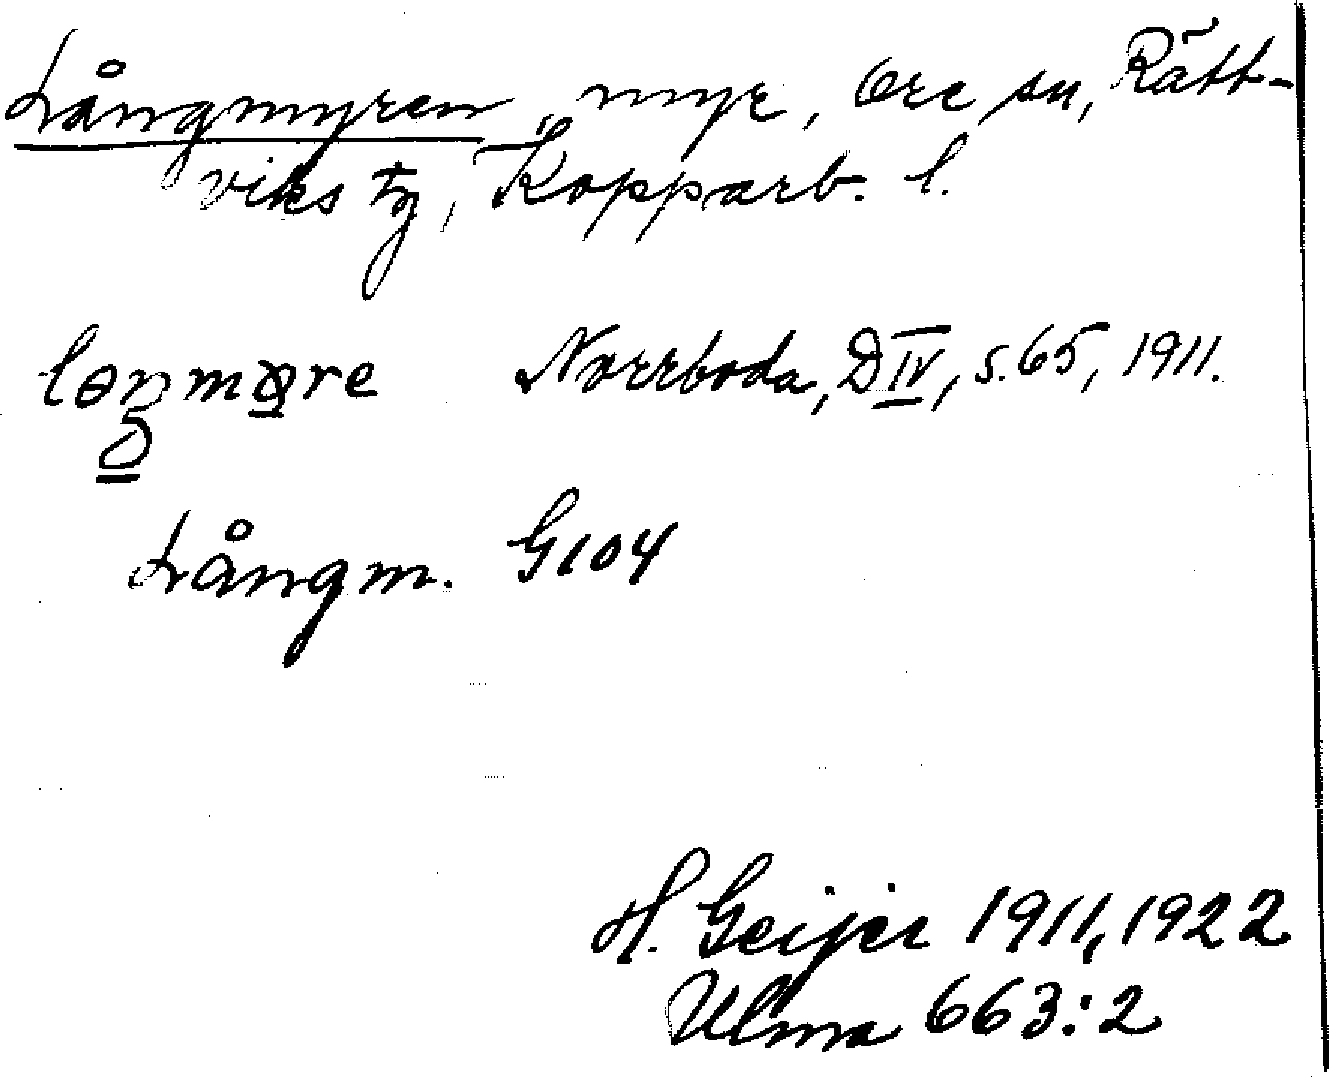 Långmyren, myr, Ore sn, Rätt-
viks tg, Kopparb. l.
Norrboda, D IV, s. 65, 1911.
Långm. G104
H. Geijer 1911, 1922
Ulma 663:2